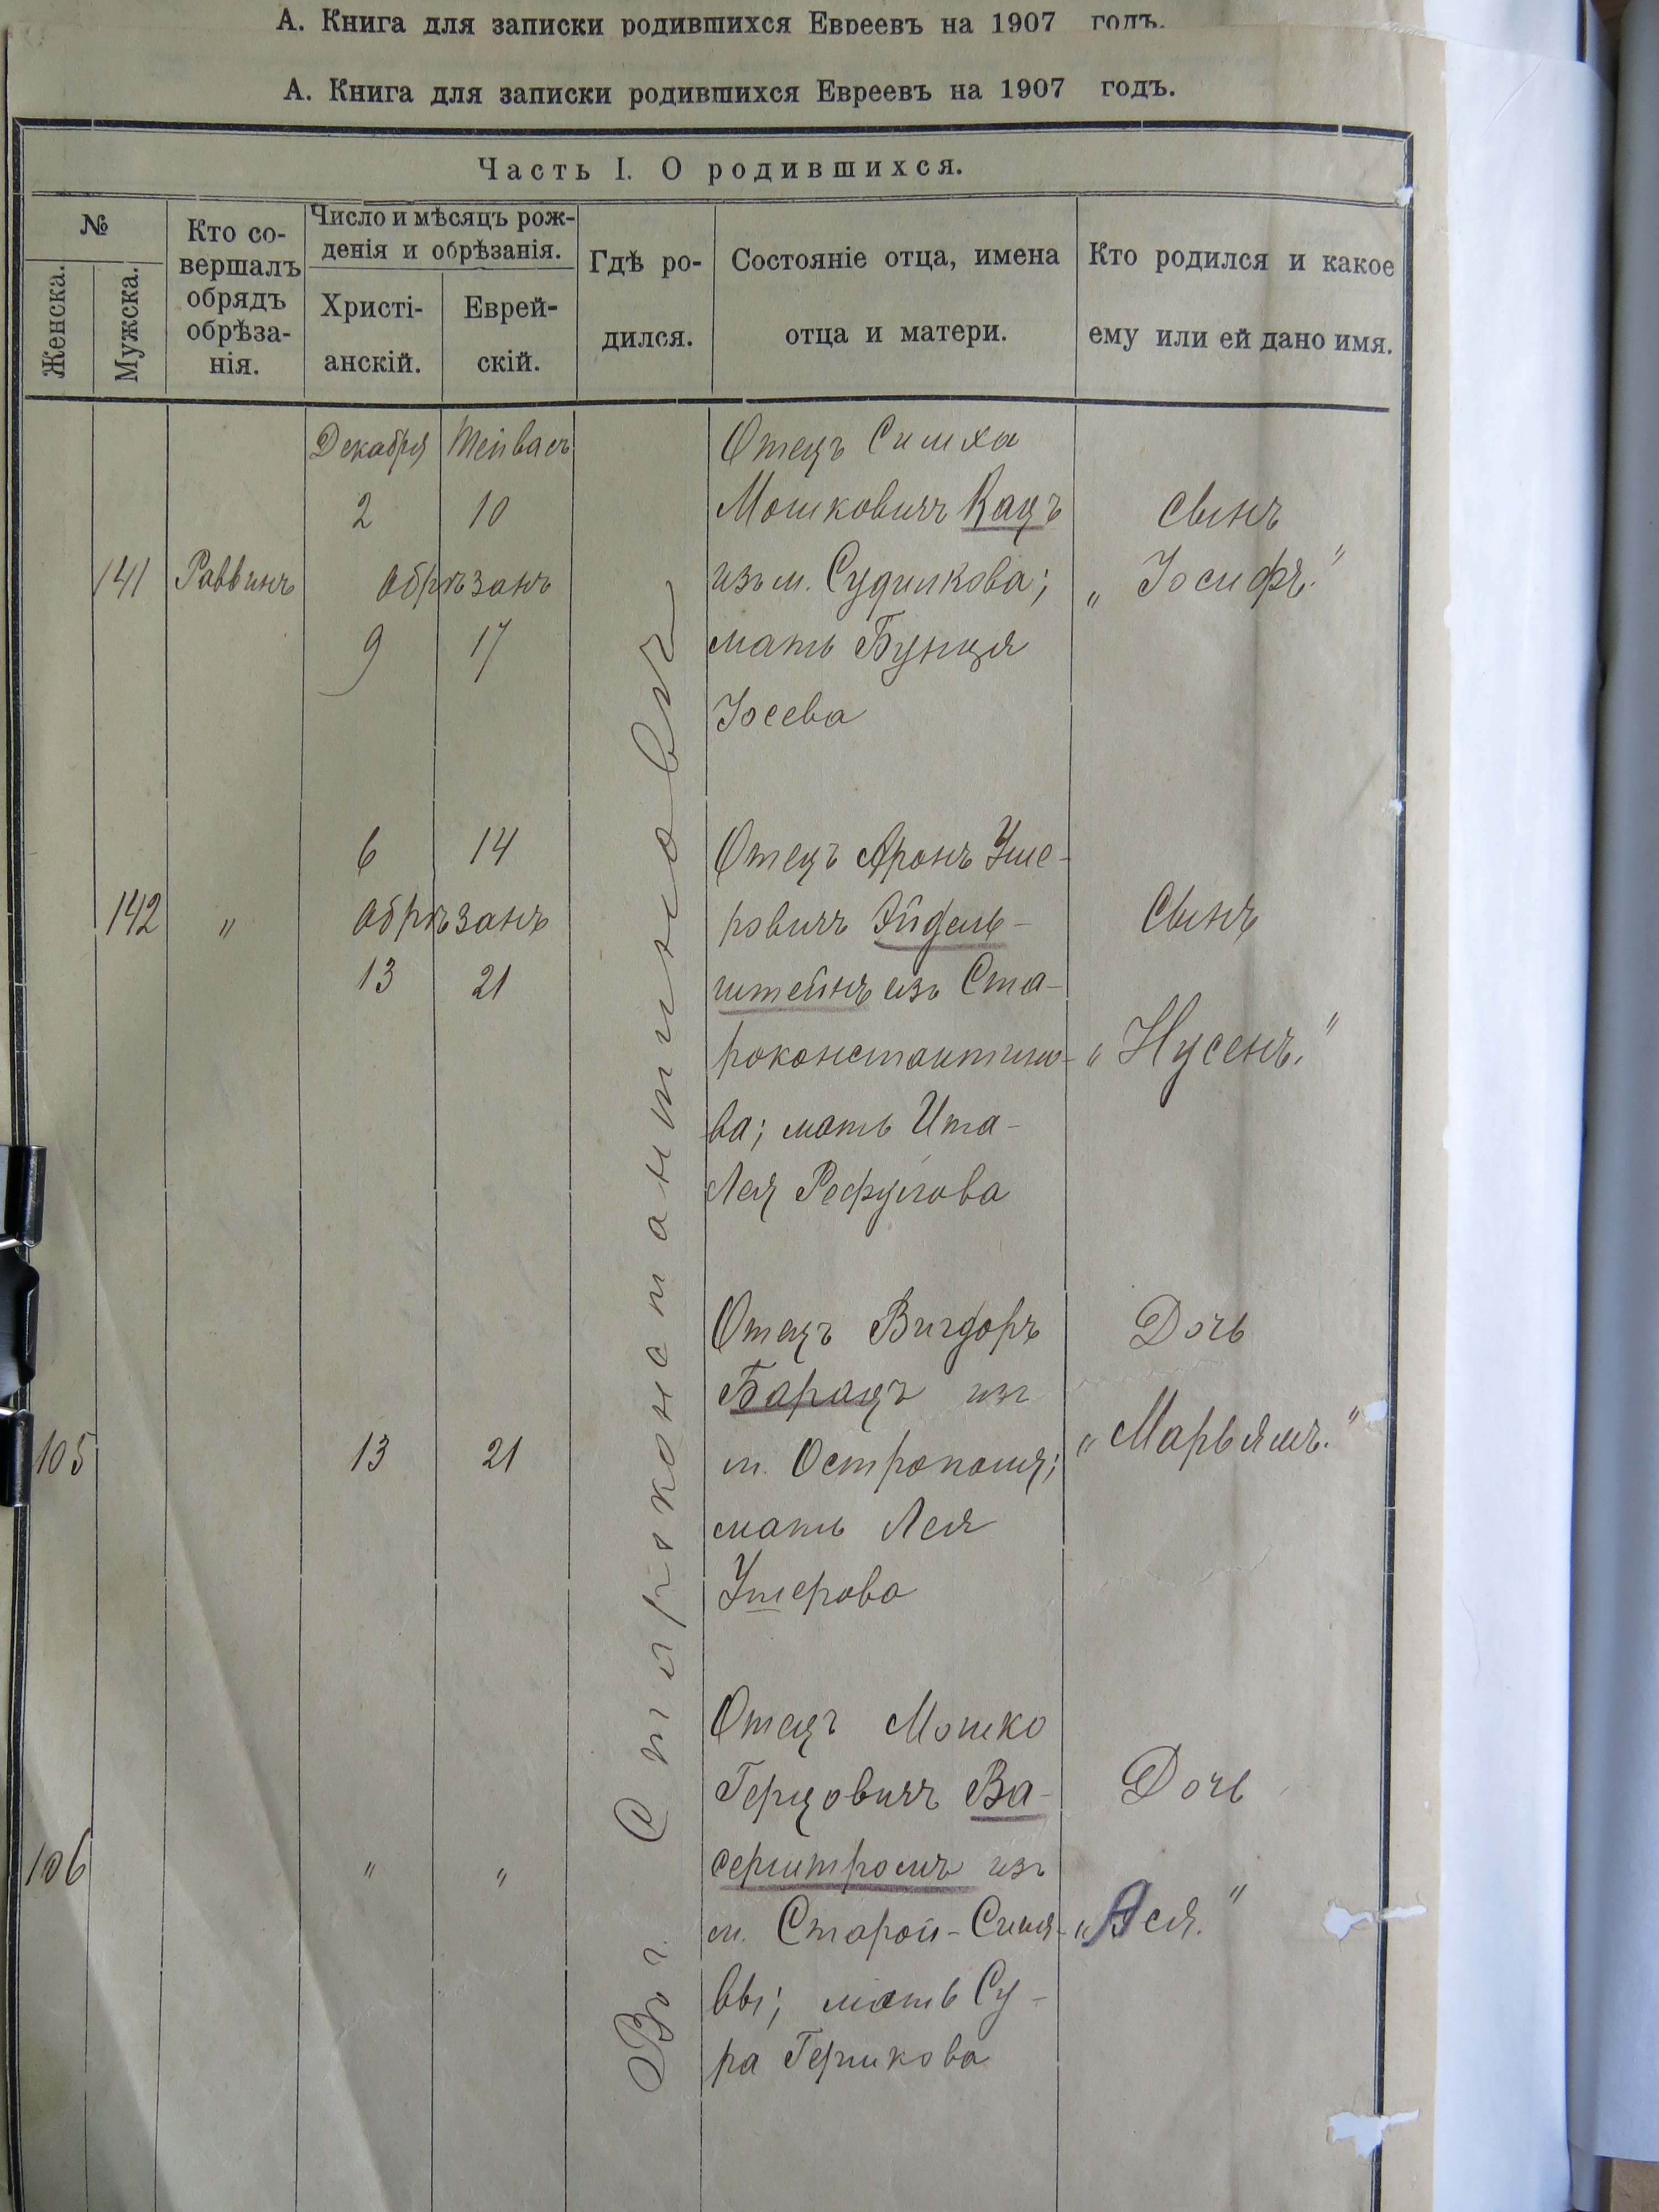 А. Книга для записки родившихся Евреевъ на 1907 годъ.
А. Книга для записки родившихся Евреевъ на 1907 годъ.
Часть I. О родившихся.
№
Женска.
Мужска.
Кто со-
вершалъ
обрядъ
обрѣза-
нія.
Число и мѣсяцъ рож-
денія и обрѣзанія.
Христі-
анскій.
Еврей-
скій.
Гдѣ ро-
дился.
Состояніе отца, имена
отца и матери.
Кто родился и какое
ему или ей дано имя.
Въ г. Староконстантиновѣ
141
Раввинъ
Декабря Тейвасъ
2 10
обрѣзанъ
9 17
Отецъ Симха
Мошковичъ Кацъ
изъ м. Судилкова;
мать Бунця
Іосева
Сынъ
„Іосифъ.“
142
„
6 14
обрѣзанъ
13 21
Отецъ Аронъ Уше-
ровичъ Эйдель-
штейнъ изъ Ста-
роконстантино-
ва; мать Ита-
Лея Рефулова
Сынъ
„Нусенъ.“
105
13 21
Отецъ Вигдоръ
Барацъ изъ
м. Острополя;
мать Лея
Ушерова
Дочь
„Марьямъ.“
106
„ „
Отецъ Мошко
Герцовичъ Ва-
серштромъ изъ
м. Старой-Синя-
вы; мать Су-
ра Гершкова
Дочь